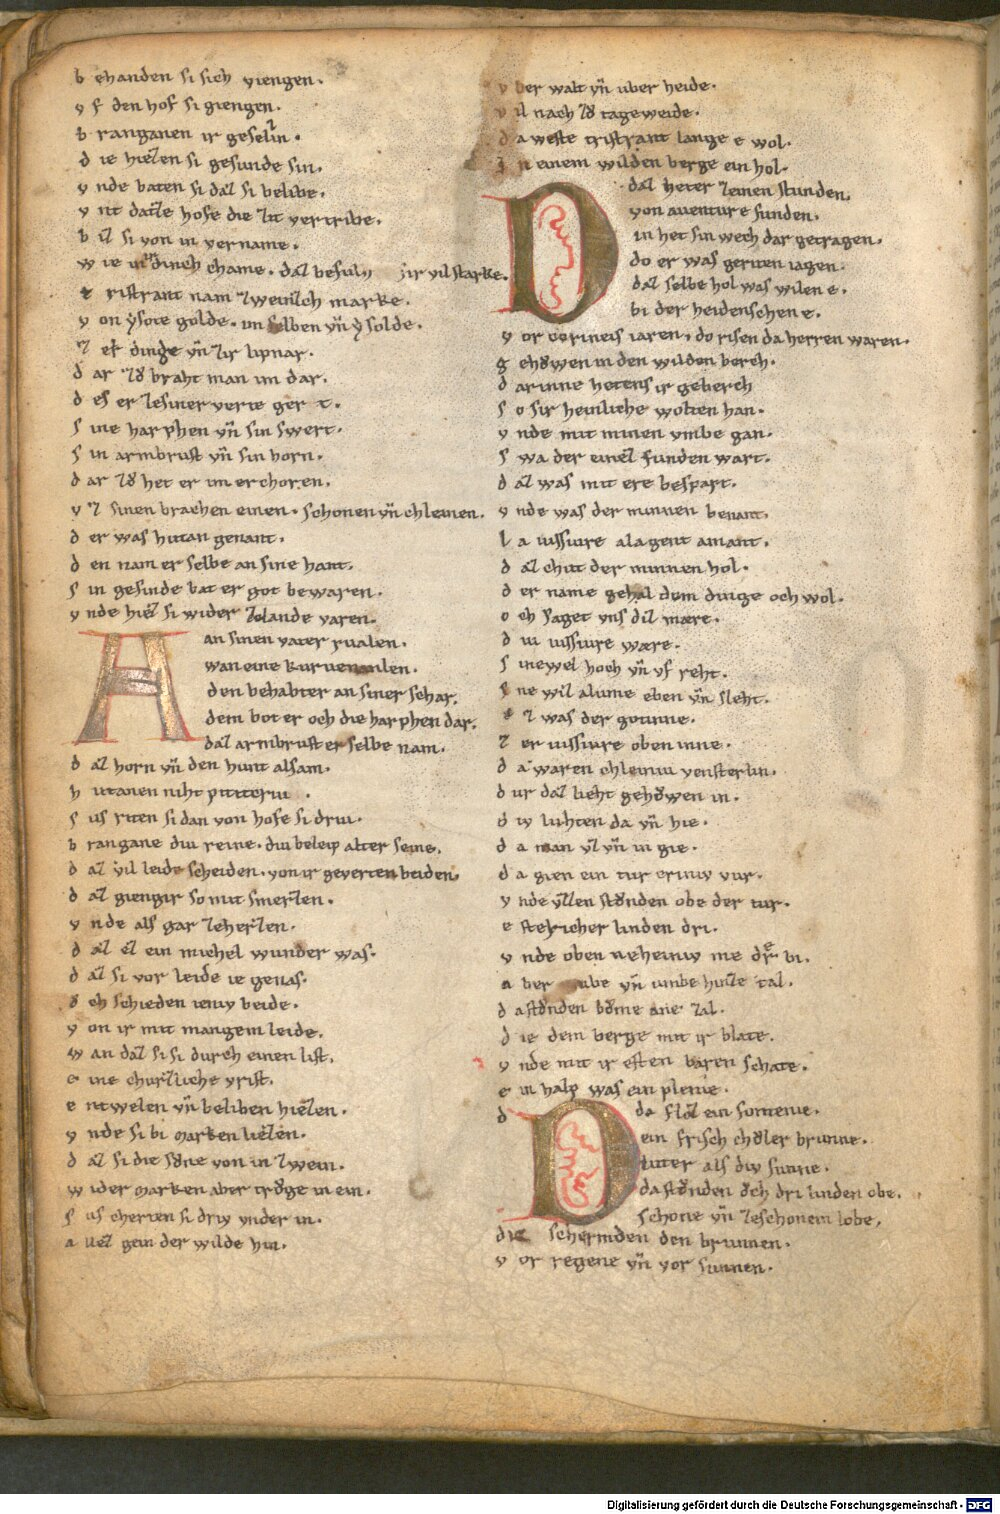 b ehanden si sich viengen.
v f den hof si giengen.
b ranganen ir geselin.
d ie hiezen si gesunde sin.
v nde baten si daz si belibe.
v nt datze hofe die zit vertribe.
b iz si von in vername.
w ie umb dinch chame. daz besuln ir vil starke.
t ristrant nam zweinzch marke.
v on ysote golde. im selben vn ysolde.
z er dinge vn zir lipnar.
d ar zů braht man im dar.
d es er ze siner verte gert.
s ine harphen vn sin swert.
s in armbrust vn sin horn.
d ar zů het er im erchoren.
v z sinen brachen einen. schonen vn chleinen.
d er was hutan genant.
d en nam er selbe an sine hant.
s in gesinde bat er got bewaren.
v nde hiez si wider zelande varen.
A an sinen vater rualen.
wan eine kurvenanlen.
den behabter an siner schar.
dem bot er och die harphen dar.
daz armbruster selbe nam.
d az horn vn den hunt alsam.
h utanen niht pititeriu.
s us riten si dan von hofe si driu.
b rangane diu reine. diu beleip alter seine.
d az vil leide scheiden. von ir geverten beiden.
d az giengir so mit smerzen.
v nde als gar zeherzen.
d az ez ein michel wunder was.
d az si vor leide ie genas.
ů ch schieden ieniv beide.
v on ir mit mangem leide.
w an daz si si durch einen list.
e ine churzliche vrist.
e ntwelen vn beliben hiezen.
v nde si bi Marken liezen.
d az si die sůne von in zwein.
w ider Marken aber trůge in ein.
s us cherten si driv vnder in.
a llez gein der wilde hin.
v ber walt vn uber heide.
v il nach zů tageweide.
d a weste tristrant lange e wol.
I n einem wilden berge ein hol.
D daz heter zeinen stunden.
von auenture funden.
in het sin wech dar getragen.
do er was geriten iagen.
daz selbe hol was wilen e.
bi der heidenschen e.
v or corineis iaren. do risen da herren waren.
g ehůwen in den wilden berch.
d arinne hetens ir geberch
s o sir heinliche wolten han.
v nde mit minen vmbe gan.
s wa der einez funden wart.
d az was mit ere bespart.
v nde was der minnen benant.
l a uissiure alagent amant.
d az chut der minnen hol.
d er name gehal dem dinge och wol.
o ch saget vns diz mære.
d iu uissiure wære.
s inewel hoch vn vf reht.
s ne wiz alume eben vn sleht.
e z was der gotinne.
z er uissiure oben inne.
d a waren chleiniu vensterlin.
d ur daz lieht gehůwen in.
d iv luhten da vn hie.
d a man vz vn in gie.
d a gien ein tur eriniv vur.
v nde vzzen stůnden obe der tur.
e stericher linden dri.
v nde oben neheiniv me dr bi.
a ber umbe vn uumbe hinze tal.
d a stůnden bůme ane zal.
d ie dem berge mit ir blate.
v nde mit ir esten baren schate.
e in halp was ein plenie.
d D da floz ein fontenie.
ein frisch chůler brunne.
luter als div sunne.
da stůnden ůch dri linden obe.
schone vn zeschonem lobe.
die schermden den brunnen.
v or regene vn vor sunnen.
Digitalisierung gefördert durch die Deutsche Forschungsgemeinschaft - DFG